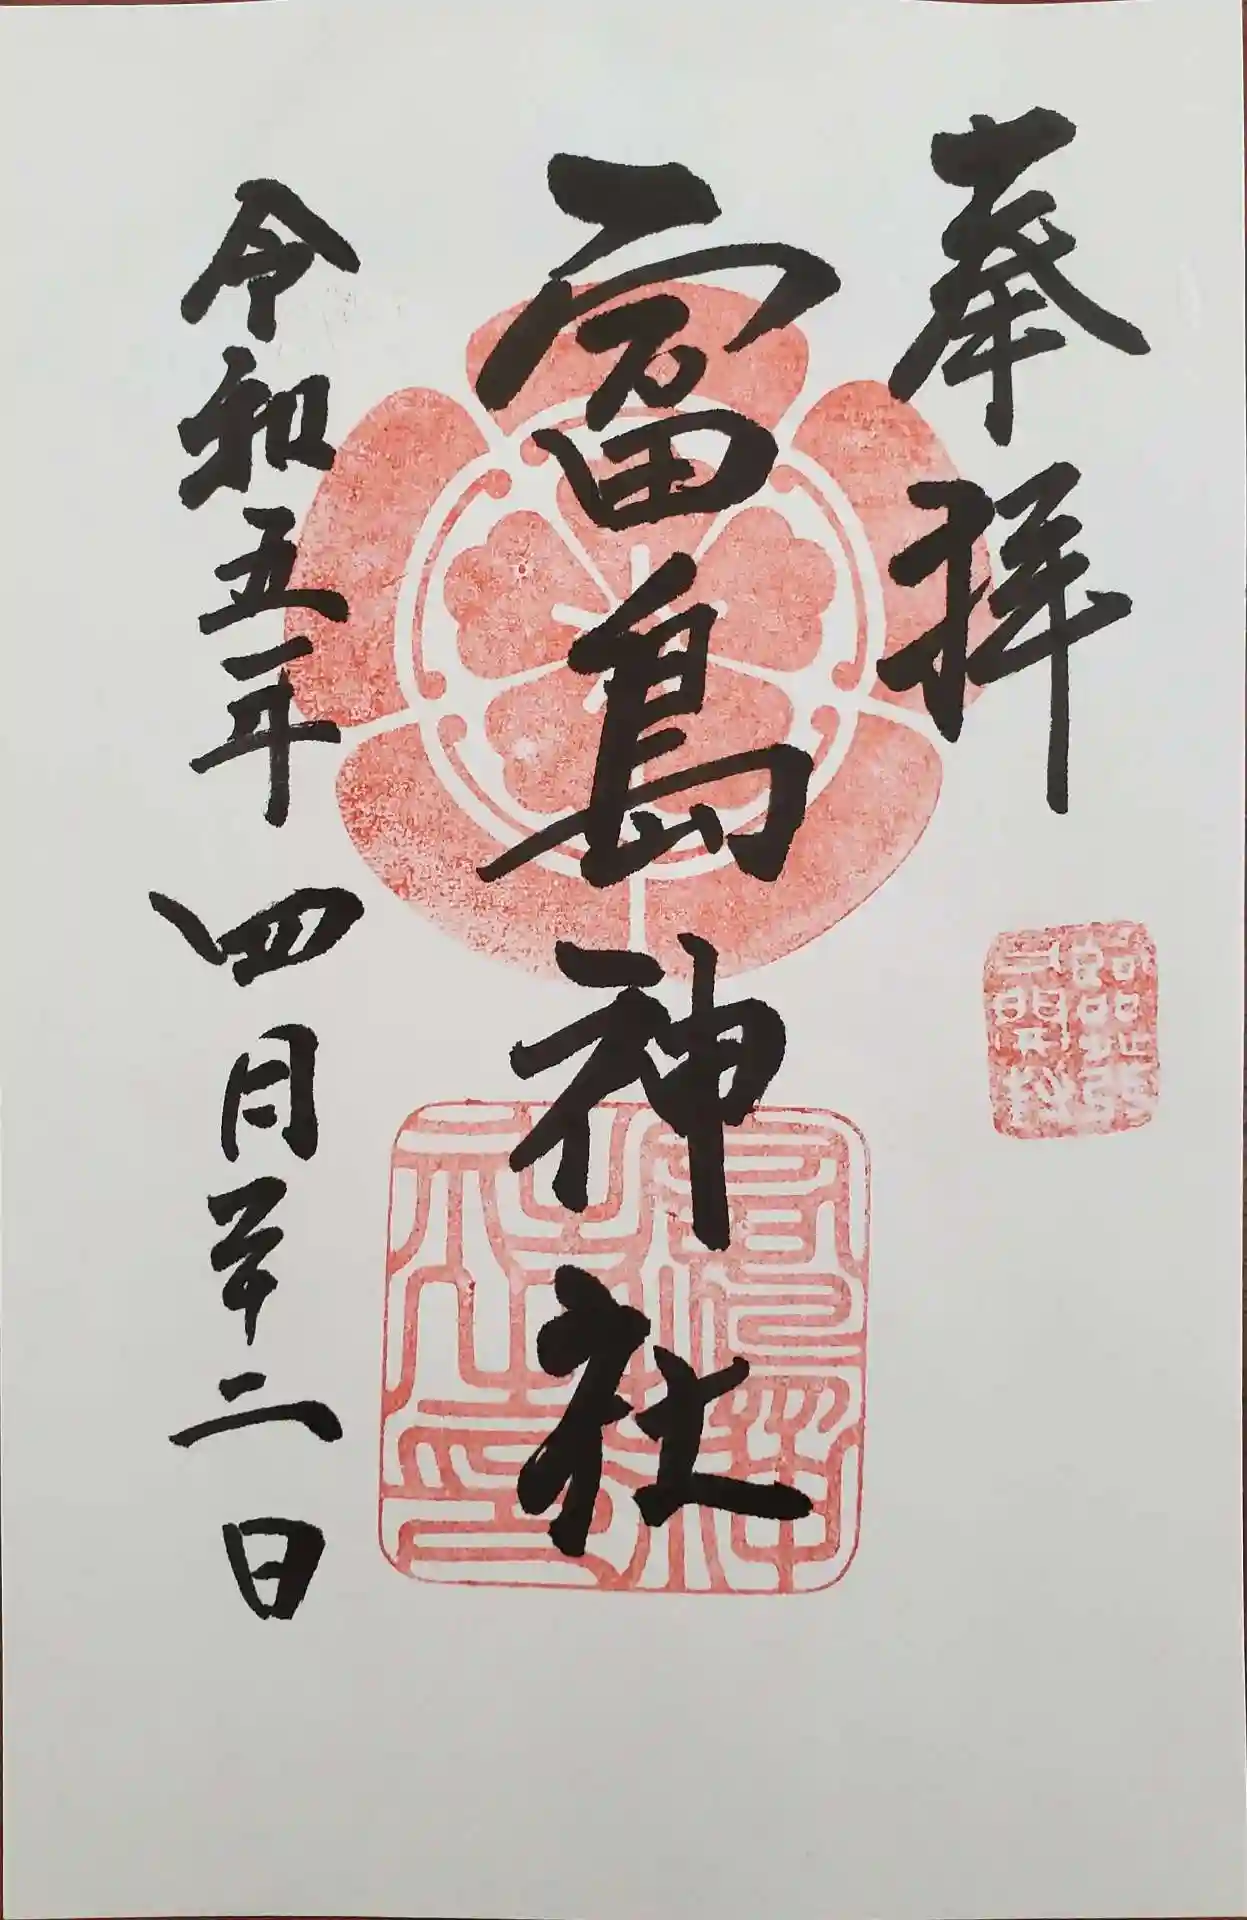 奉拝
富島神社
令和五年四月二十二日